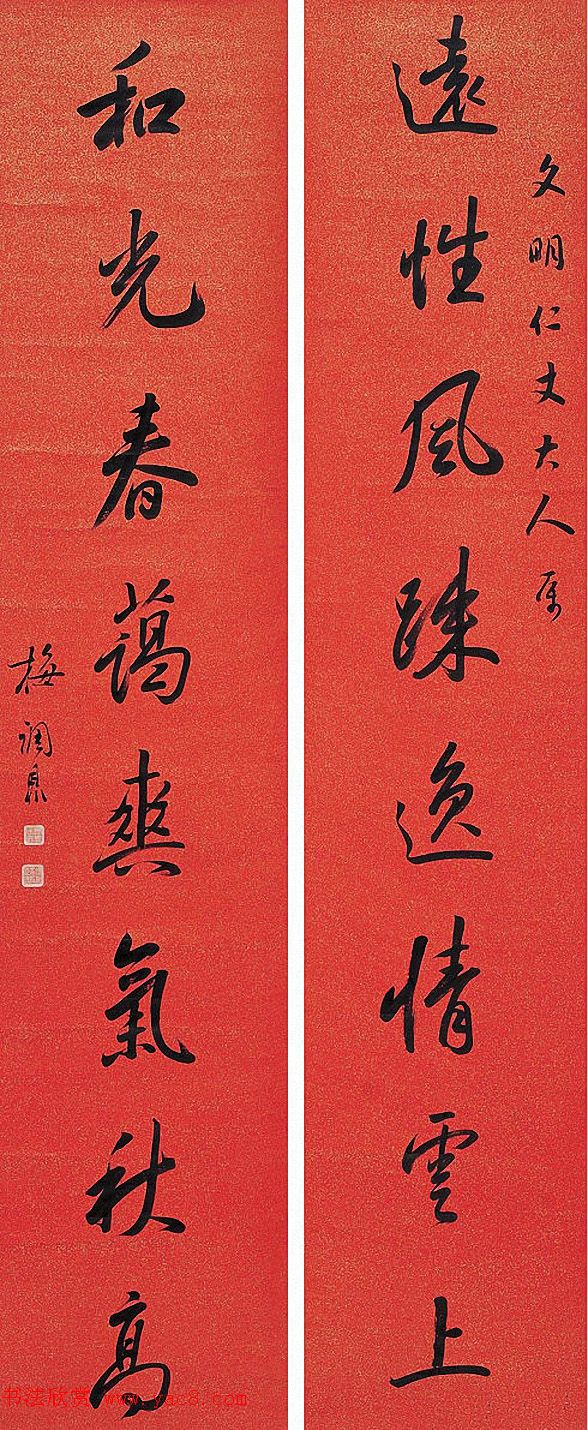 文明仁丈大人属
遠性風踈逸情雲上
和光春藹爽氣秋高
梅調鼎
书法欣赏 www.yac8.com